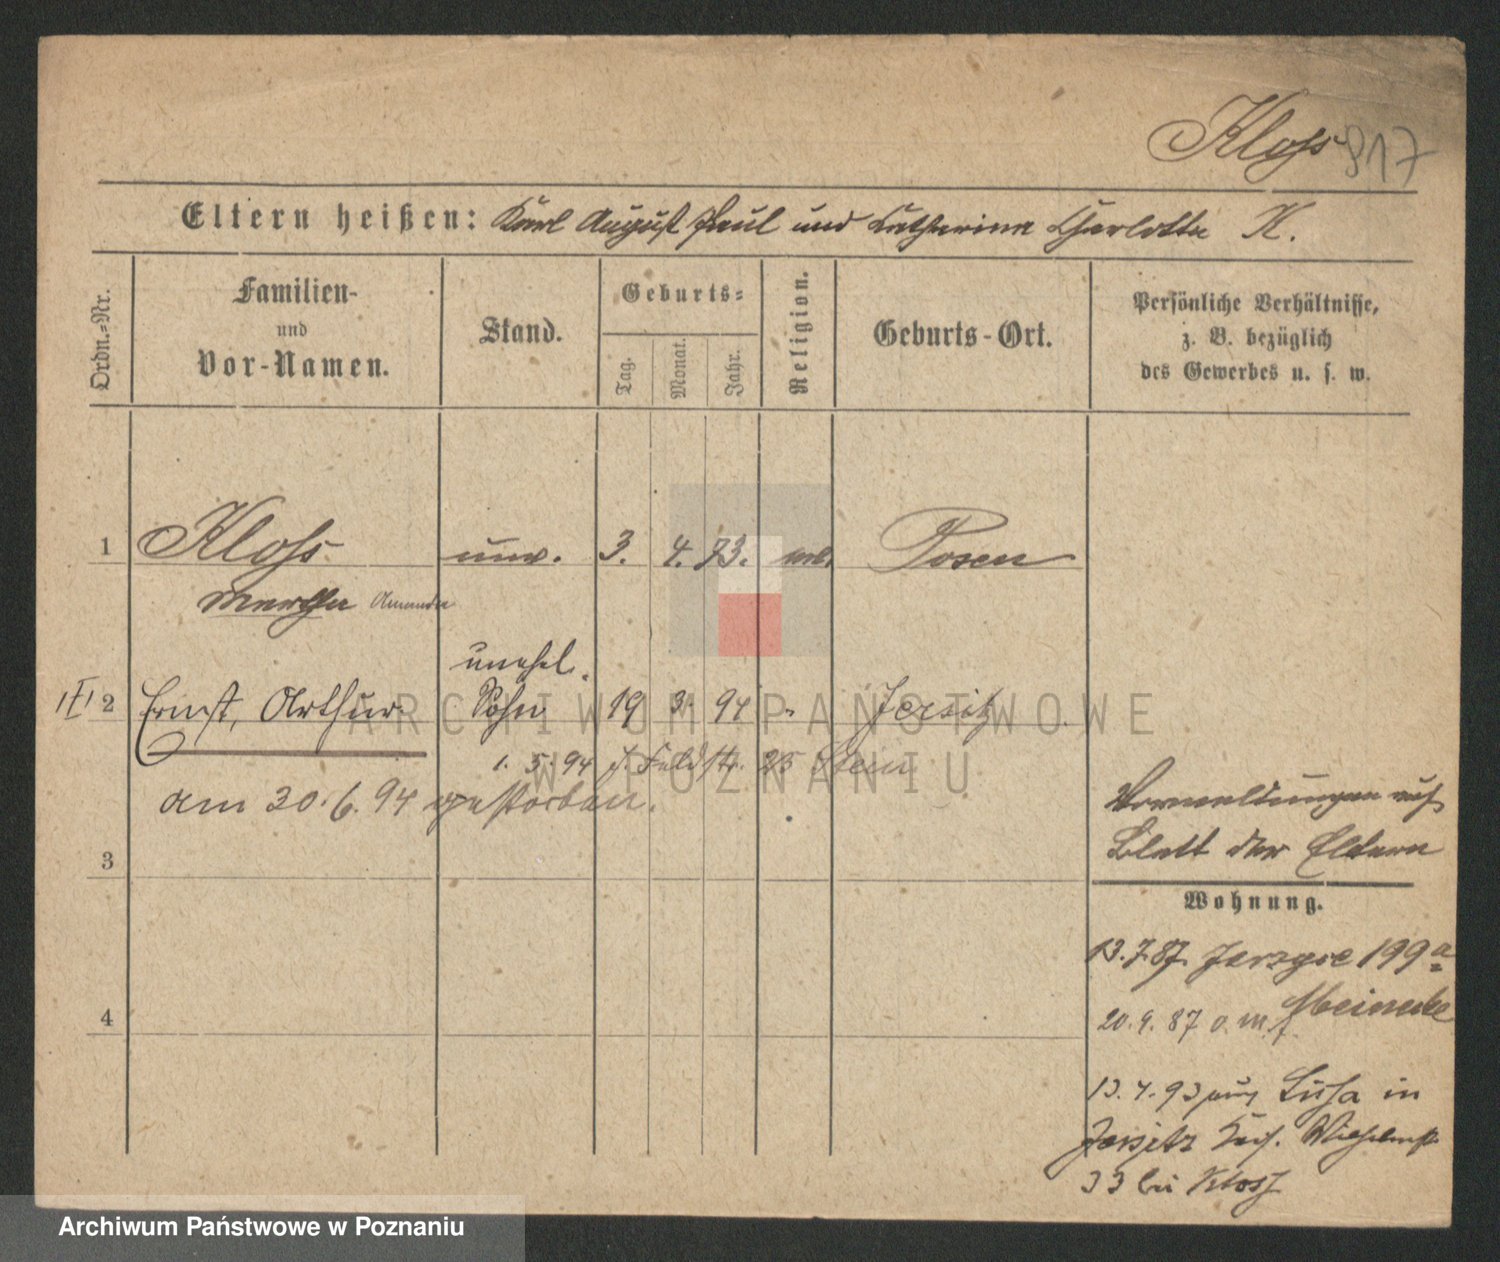 Kloss 817
Eltern heißen: Karl August Paul und Katharina Charlotte K.
Ordn.=Nr.
Familien-
und
Vor-Namen.
Stand.
Geburts=
Tag.
Monat.
Jahr.
Religion.
Geburts-Ort.
Persönliche Verhältnisse,
z. B. bezüglich
des Gewerbes u. s. w.
1 Kloss unv. 3. 4. 73. Posen
Martha Amanda
unehel.
2 Ernst, Arthur Sohn 19 3. 94 " Jersitz
1. 5. 94 J. Feldstr. 25
am 30. 6. 94 gestorben.
Vormeldungen auf
Blatt der Eltern
3
Wohnung.
13.7.87. 199a
20.9.87 Meinecke
4
13.4.93 in
Jersitz Wilhelmstr
33 bei Kloss
ARCHIWUM PAŃSTWOWE
W POZNANIU
Archiwum Państwowe w Poznaniu